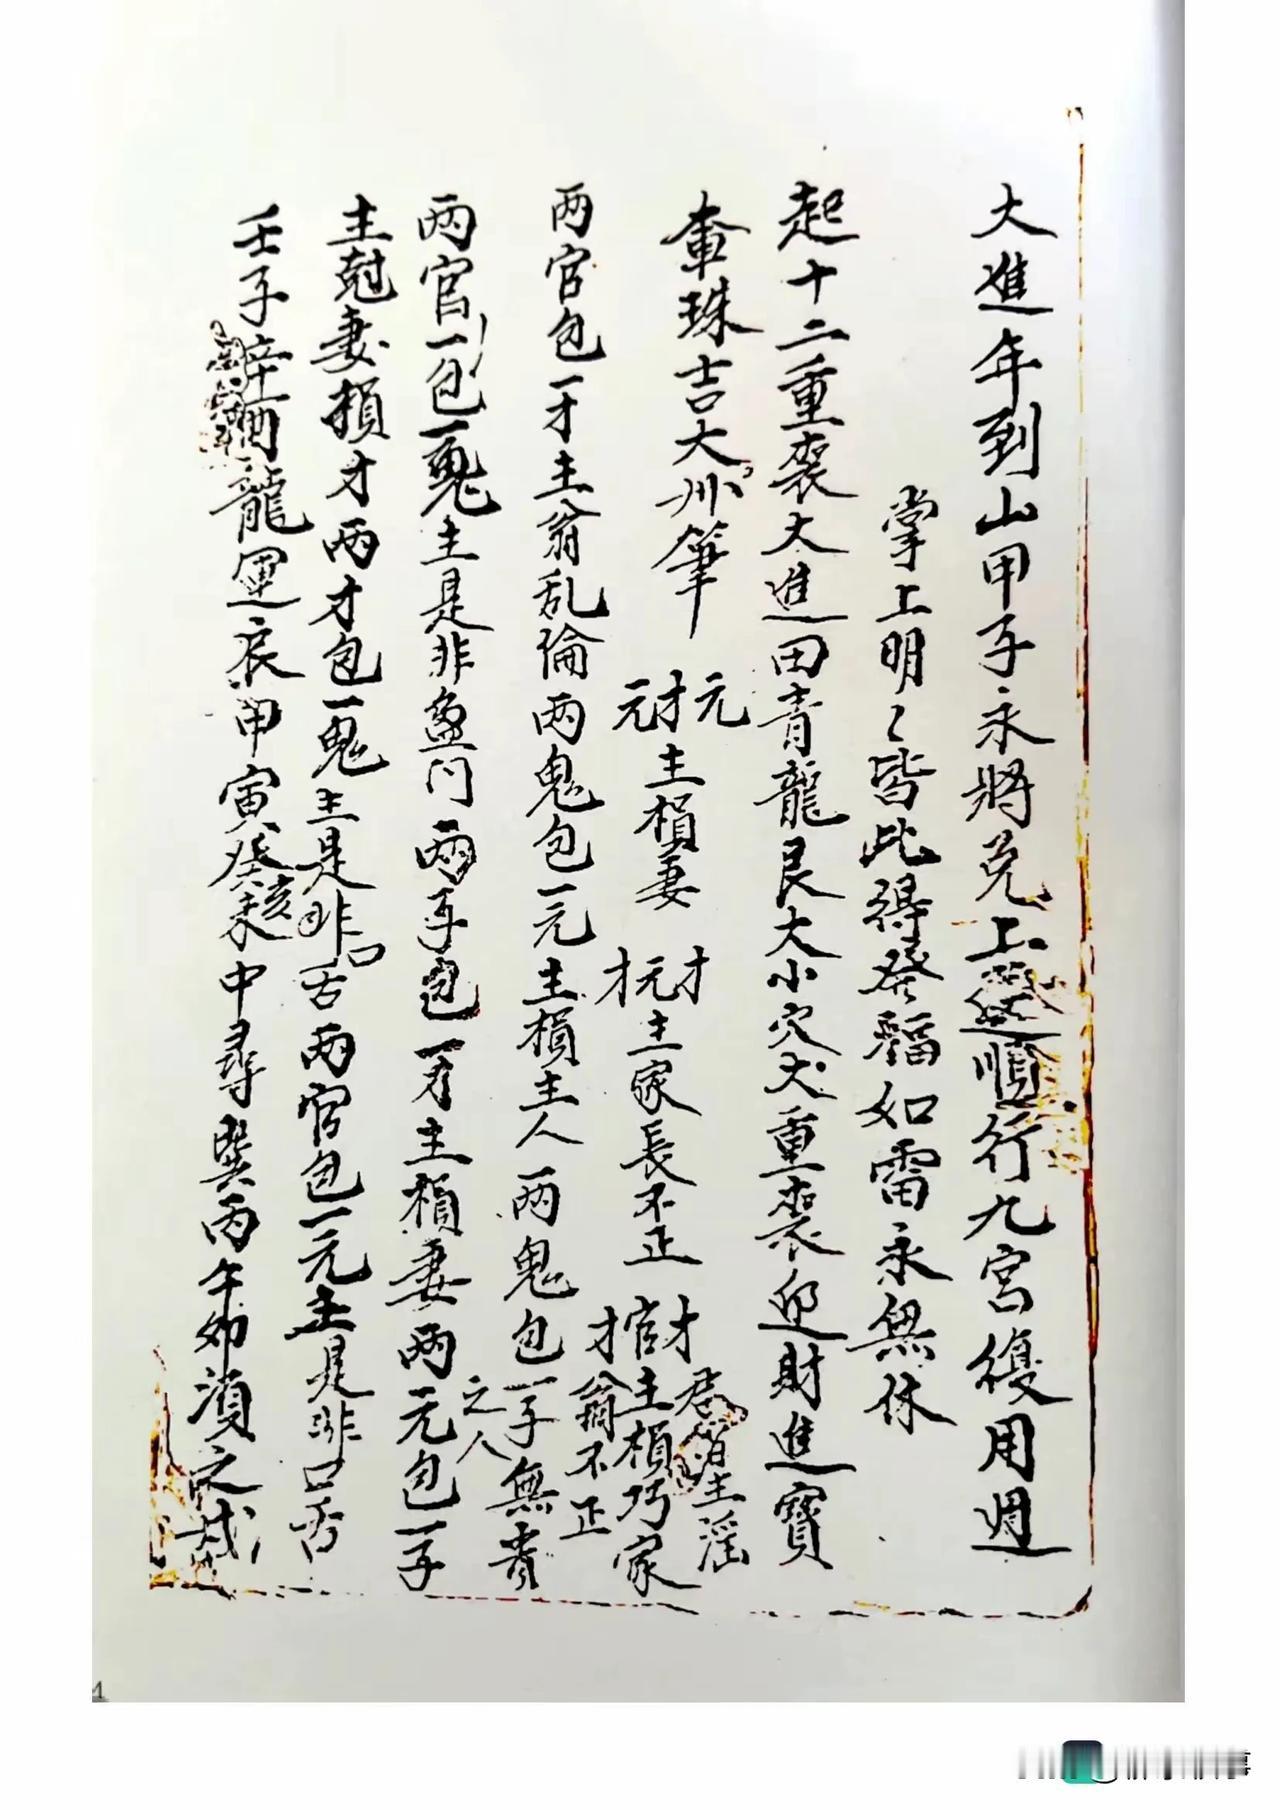 大進年到山甲子永將兌上逆順行九宮復用週
掌上明〻皆此得發福如雷永無休
起十二重裘大進田青龍艮大小穴大重裘迎財進寶
奎珠吉大州筆
元才元主損妻
才元才主家長不正
才官才主損巧家
翁不正
君皇主淫
两官包一才主翁乱倫两鬼包一元主損主人两鬼包一子無貴
之人
两官一包一鬼主是非盈门两子包一才主損妻两元包一子
主尅妻損才两才包一鬼主是非口舌两官包一元主是非口舌
壬子辛酉龍運辰甲寅癸亥未中尋巽丙午如湏之哉